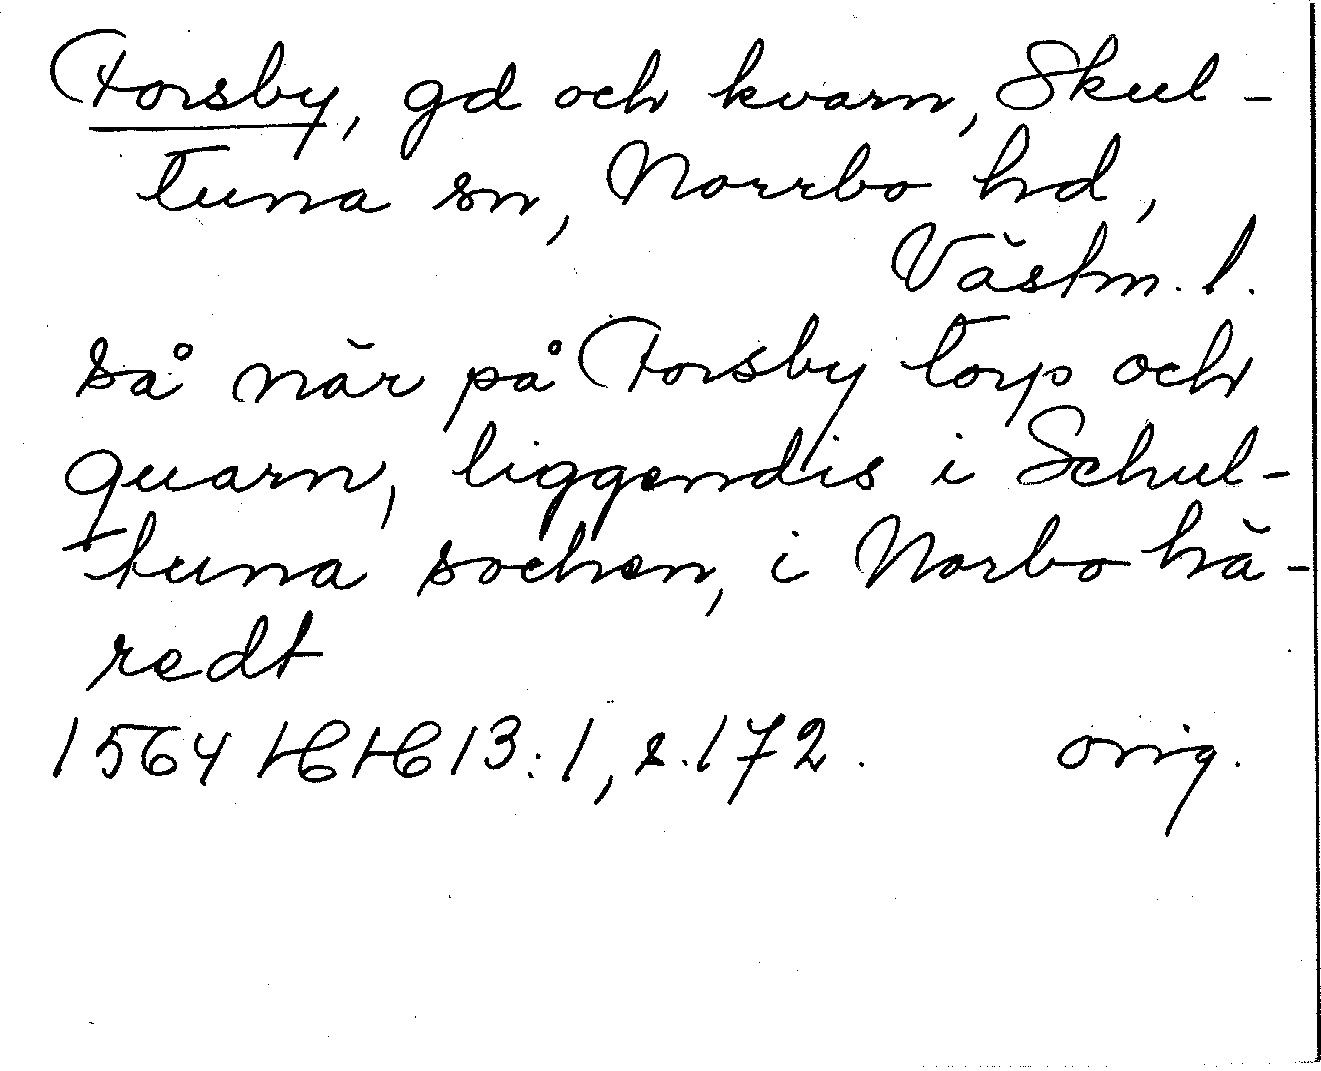 Forsby, gd och kvarn, Skul-
tuna sn, Norrbo hd,
Västm. l.
Så när på Forsby torp och
quarn, liggendis i Schul-
tuna sochen, i Norbo hä-
redt
1564 HH 13:1, s. 172. orig.